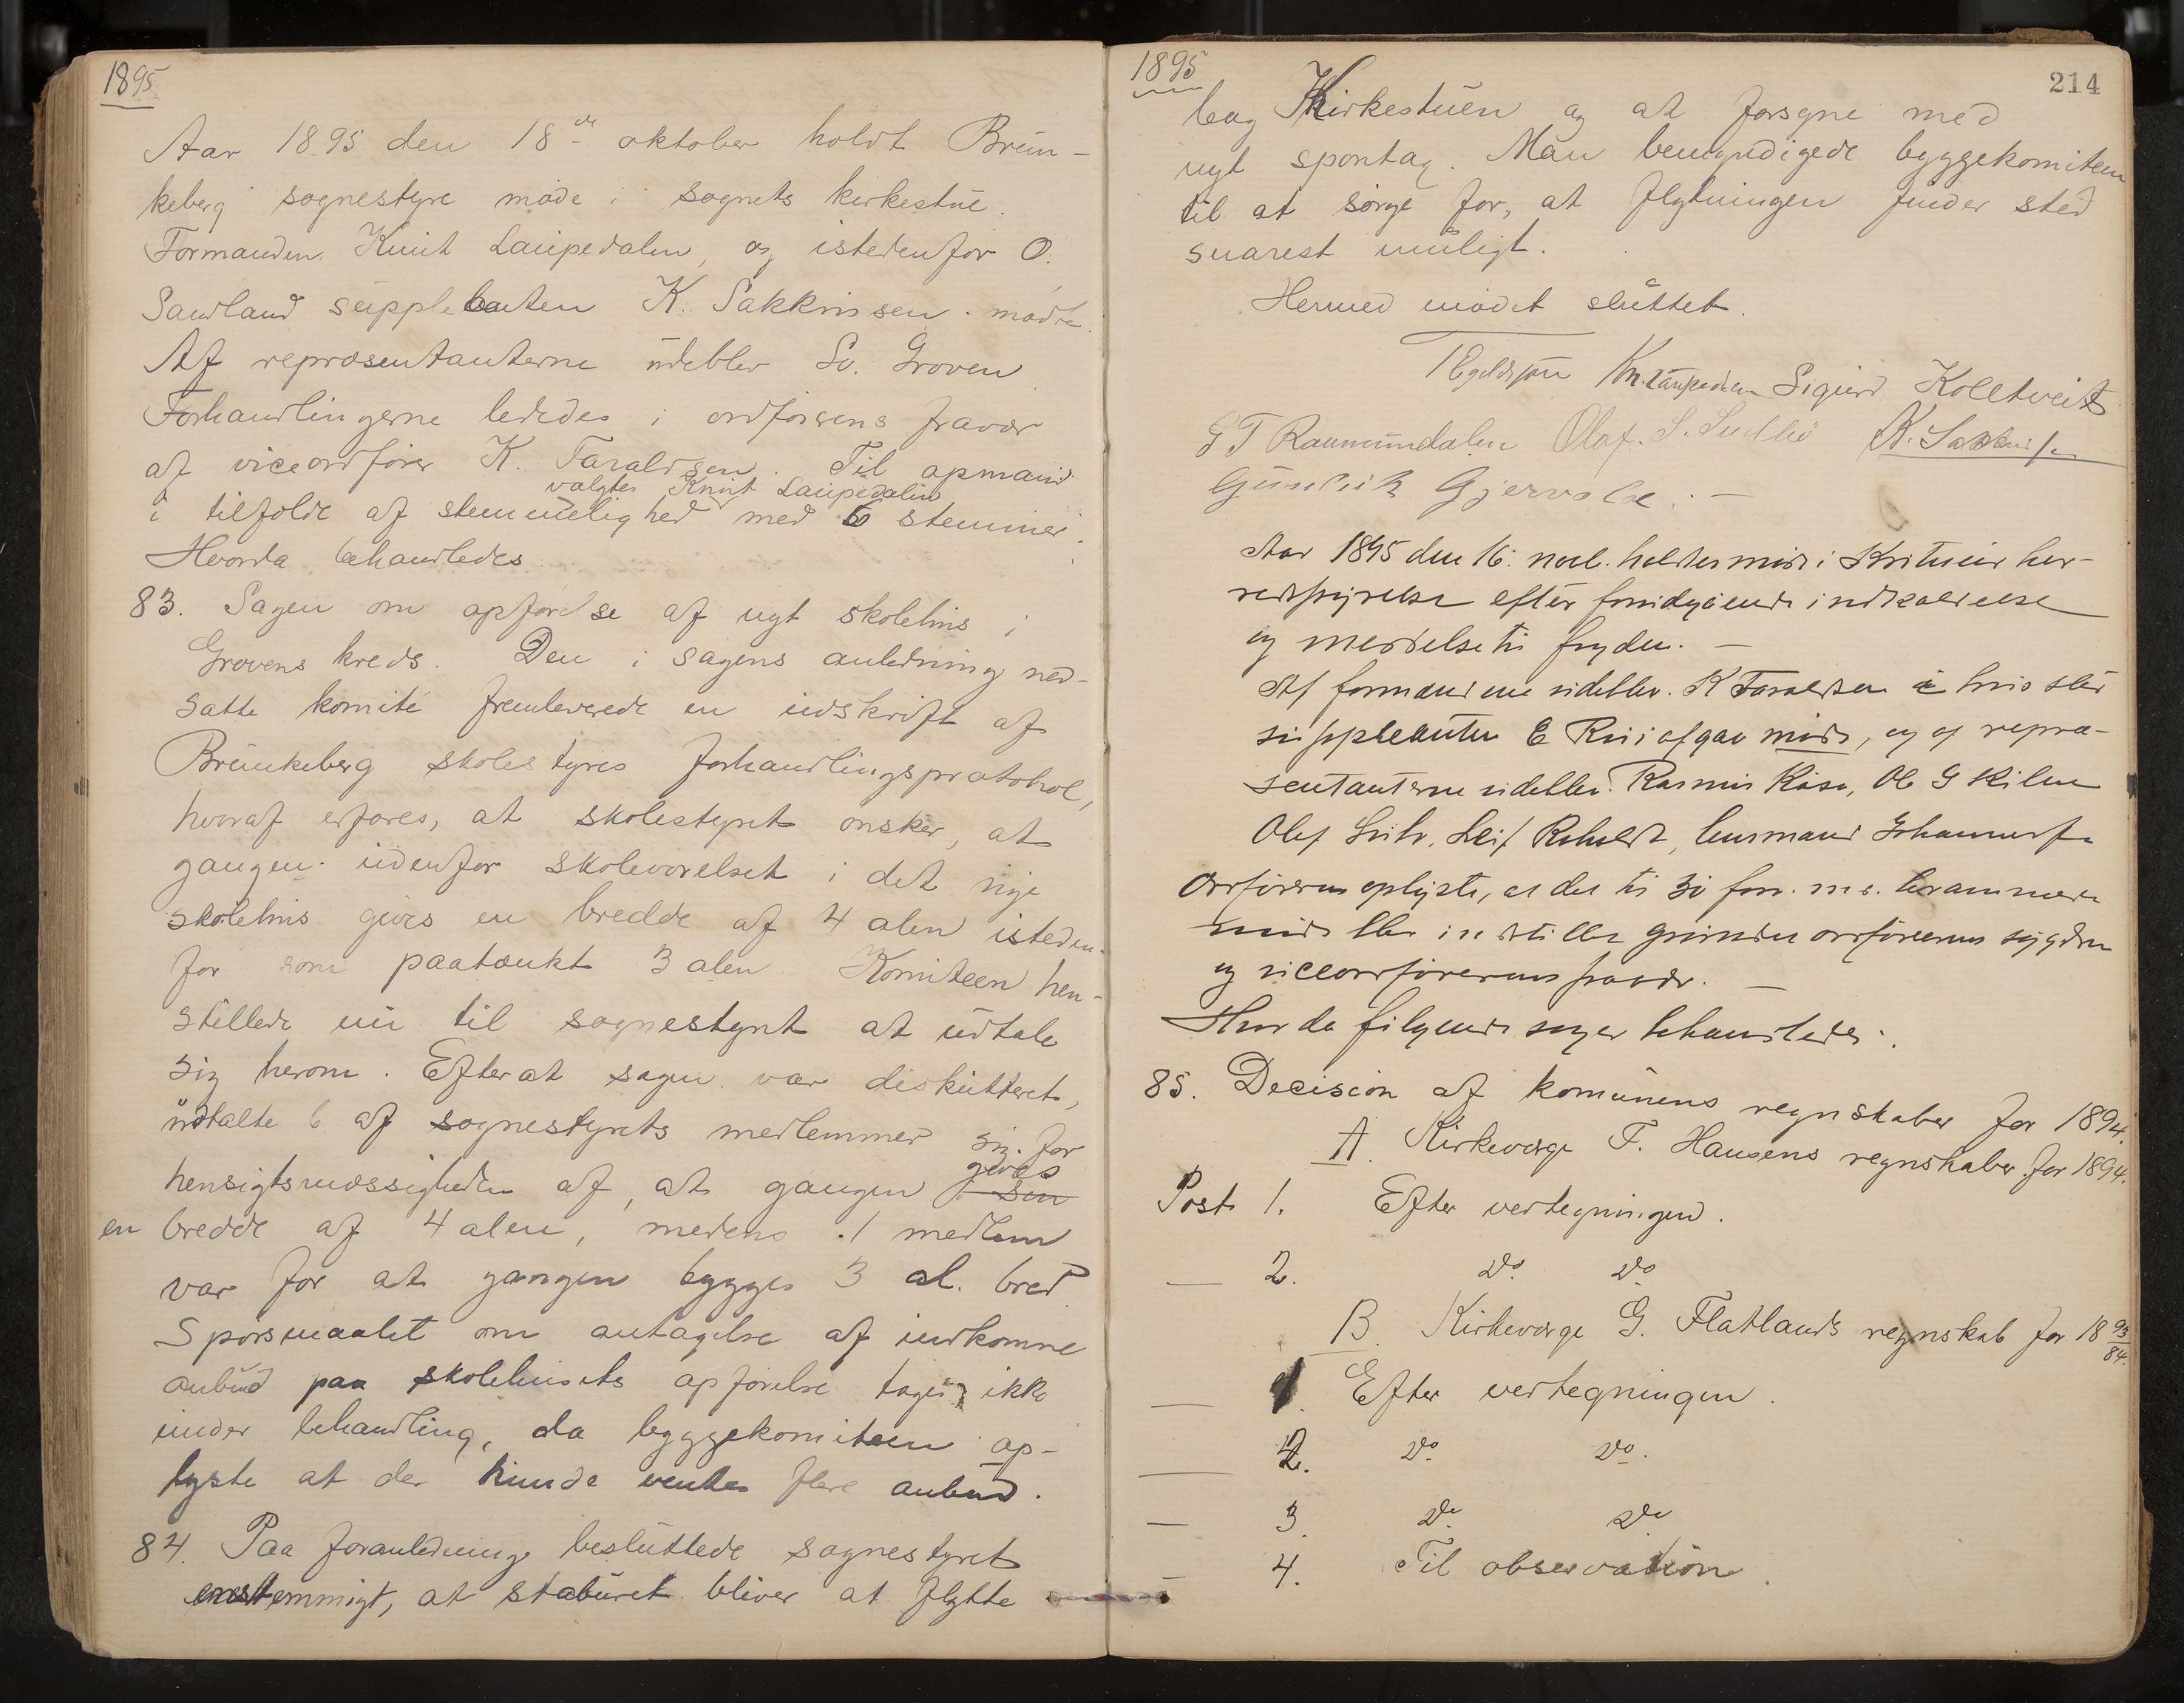 1895
Aar 1895 den 18de oktober holdt Brun-
keberg sognestyre møde i sognets kirkestue.
Formanden Knut Laupedalen, og istedenfor O.
Sandland suppleanten K. Sakkrisen mødte.
Af repræsentanterne udeblev Sv. Groven
Forhandlingerne lededes i ordførerens fravær
af viceordfører K. Taraldsen. Til opmand
valgtes Knut Laupedalen
i tilfælde af stemmelighed med 6 stemmer.
Hvorda behandledes
83. Sagen om opførelse af nyt skolehus i
Grovens kreds. Den i sagens anledning ned-
satte komité fremleverede en udskrift af
Brunkeberg skolestyres forhandlingsprotokol,
hvoraf erfares, at skolestyret ønsker, at
gangen udenfor skoleværelset i det nye
skolehus gives en bredde af 4 alen isteden-
for som paatænkt 3 alen Komiteen hen-
stillede nu til sognestyret at udtale
sig herom. Efterat sagen var diskutteret,
udtalte 6 af sognestyrets medlemmer sig for
hensigtsmæssigheden af, at gangen gives
en bredde af 4 alen, medens 1 medlem
var for at gangen bygges 3 al. bred
Spørsmaalet om antagelse af indkomne
anbud paa skolehusets opførelse toges ikke
under behandling, da byggekomiteen op-
lyste at der kunde ventes flere anbud.
84. Paa foranledning besluttede sognestyret
enstemmigt, at staburet bliver at flytte
1895
214
bag Kirkestuen og at forsyne med
nyt spontag. Man bemyndigede byggekomiteen
til at sørge for, at flytningen finder sted
snarest muligt.
Hermed mødet sluttet.
Kn. Laupedalen Sigurd Kolltveit
G T Raumundalen Olaf S. K. Sakkrisen
Gunleik Gjervole.
Aar 1895 den 16. novb. holdtes møde i her-
redsstyrelse efter foridgaaende indkaldelse
og meddelse til fogden.
Af formændene udeblev K Taraldsen i hvis sted
suppleanten E Rui afgav møde, og af repræ-
sentanterne udeblev Rasmus Kaasa, Ole G Kilen
Olaf Leif Roholdt, lensmand Johannesen
Ordføreren oplyste, at det til 30 for. m. s. berammede
møde blev indstillet grundet ordførerens sygdom
og viceordførerens fravær.
Hvorda følgende sager behandledes.
85. Decision af komunens regnskaber for 1894.
A. Kirkeværge F. Hansens regnskaber for 1894.
Post 1. Efter vedtegningen.
— 2. do do
B. Kirkeværge G. Flatlands regnskab for 1893/84.
— 1. Efter vedtegningen.
— 2. do do.
— 3. do do
— 4. Til observation.